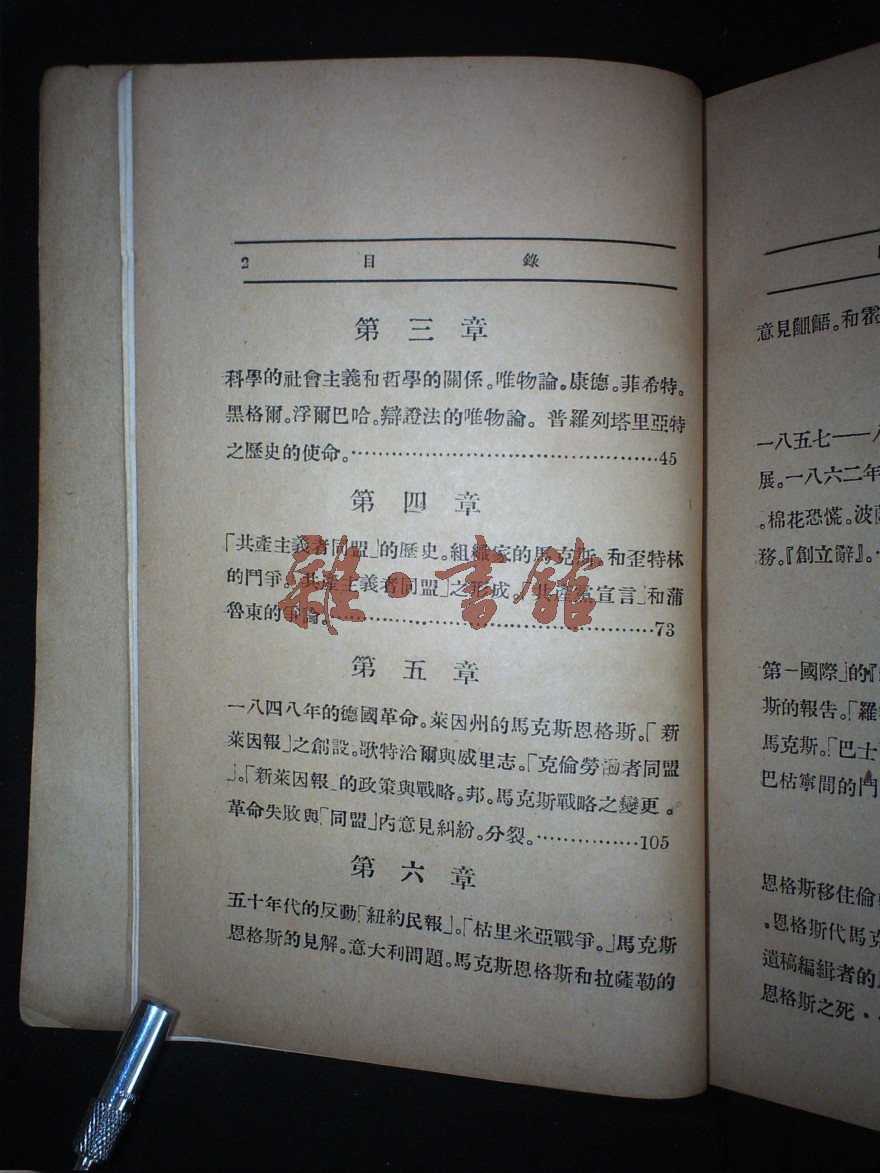 2 目錄
第三章
科學的社會主義和哲學的關係。唯物論。康德。菲希特。
黑格爾。浮爾巴哈。辯證法的唯物論。普羅列塔里亞特
之歷史的使命。……………………………………45
第四章
「共產主義者同盟」的歷史。組織家的馬克斯。和歪特林
的鬥爭。「共產主義者同盟」之形成。「共產黨宣言」和蒲
魯東的爭論。……………………………………73
第五章
一八四八年的德國革命。萊因州的馬克斯恩格斯。「新
萊因報」之創設。歌特洽爾與威里志。「克倫勞働者同盟
」。「新萊因報」的政策與戰略。邦。馬克斯戰略之變更。
革命失敗與「同盟」內意見糾紛。分裂。……………105
第六章
五十年代的反動「紐約民報」。「枯里米亞戰爭。」馬克斯
恩格斯的見解。意大利問題。馬克斯恩格斯和拉薩勒的
意見齟齬。和霍
一八五七——八
展。一八六二年
。棉花恐慌。波
務。『創立辭』。
第一國際」的『
斯的報告。「羅
馬克斯。「巴士
巴枯寧間的鬥
恩格斯移住倫
。恩格斯代馬克
遺稿編緝者的
恩格斯之死
雜·書館